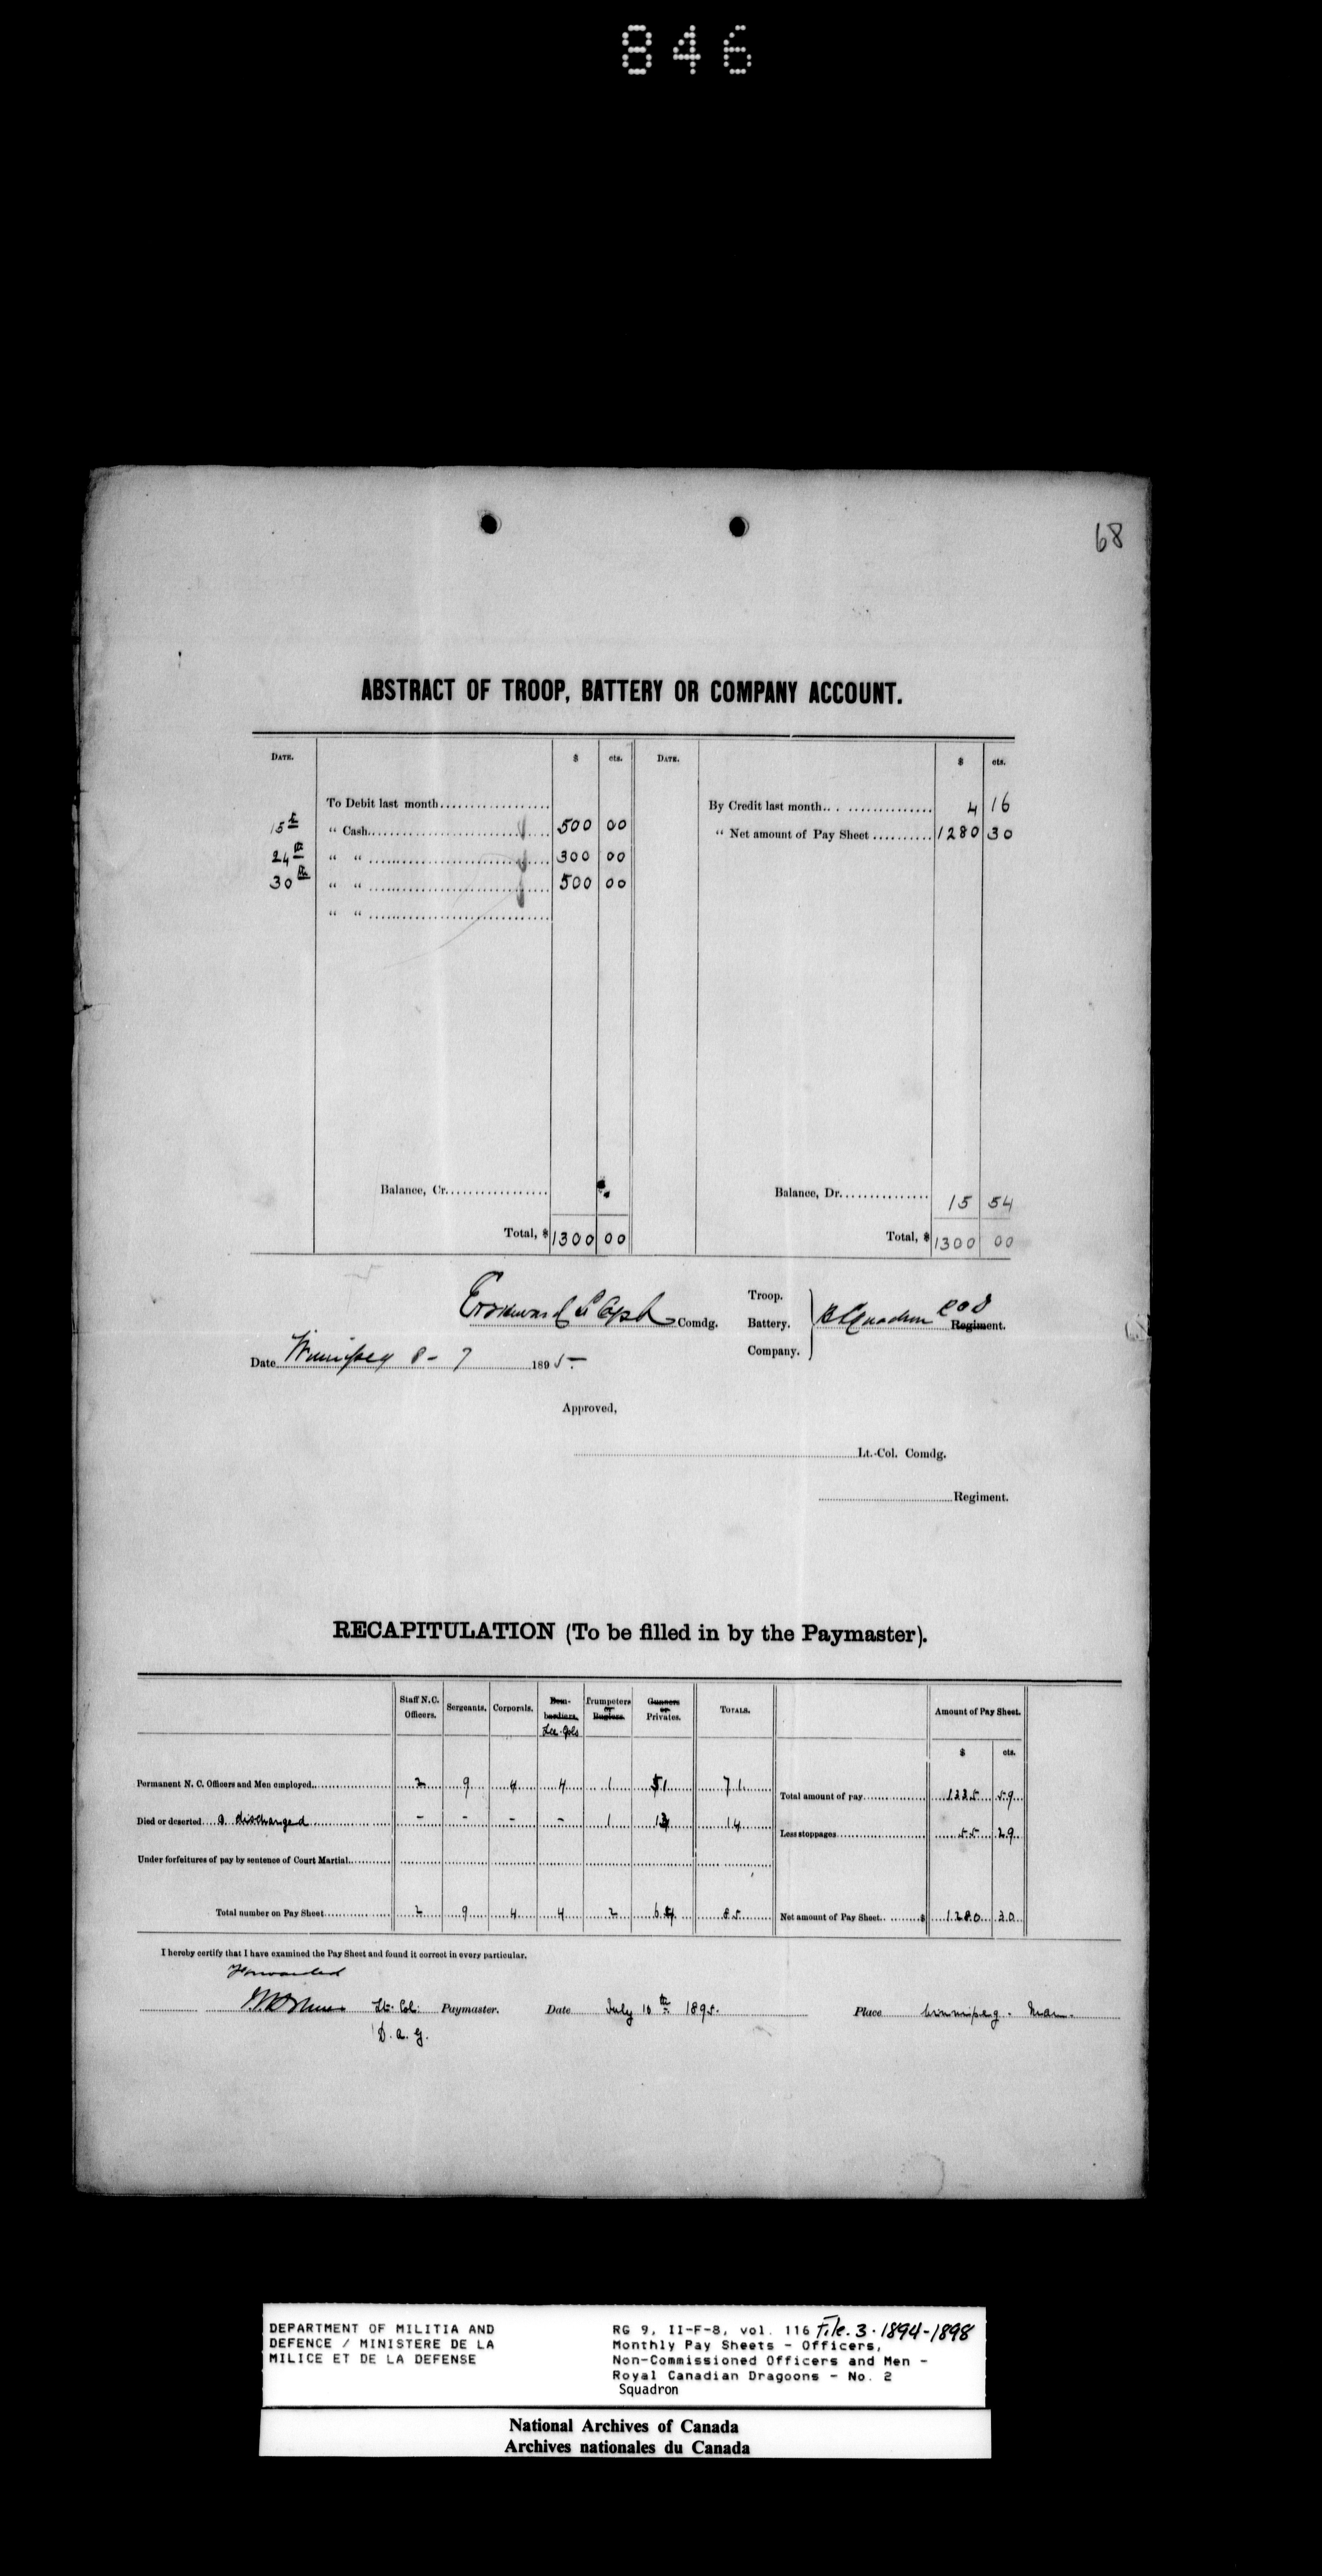 846
68
ABSTRACT OF TROOP, BATTERY OR COMPANY ACCOUNT.
DATE. $ cts. DATE. $ cts.
To Debit last month.................. By Credit last month.................. 4 16
15th " Cash.................. 500 00 " Net amount of Pay Sheet .......... 1280 30
24th " " .................. 300 00
30th " " .................. 500 00
" " ..................
Balance, Cr.................. Balance, Dr............... 15 54
Total, $ 1300 00 Total, $ 1300 00
Capt Comdg.
Troop.
Battery.
Company.
B Squadron RCD Regiment.
Date Winnipeg 8 - 7 1895-
Approved,
Lt.-Col. Comdg.
Regiment.
RECAPITULATION (To be filled in by the Paymaster).
Staff N.C. Officers. Sergeants. Corporals. Bombardiers. Trumpeters or Buglers. Gunners or Privates. TOTALS. Amount of Pay Sheet.
$ cts.
Permanent N. C. Officers and Men employed.......... 2 9 4 4 1 51 71 Total amount of pay.......... 1335 59
Died or deserted.... discharged - - - - 1 13 14 Less stoppages.......... 55 29
Under forfeitures of pay by sentence of Court Martial..........
Total number on Pay Sheet.......... 2 9 4 4 2 64 85 Net amount of Pay Sheet.......... $ 1280 30
I hereby certify that I have examined the Pay Sheet and found it correct in every particular.
Forwarded
Lt. Col. Paymaster. Date July 10th 1895. Place Winnipeg. Man.
D. A. G.
DEPARTMENT OF MILITIA AND
DEFENCE / MINISTERE DE LA
MILICE ET DE LA DEFENSE
RG 9, II-F-8, vol. 116 File. 3. 1894-1898
Monthly Pay Sheets - Officers,
Non-Commissioned Officers and Men -
Royal Canadian Dragoons - No. 2
Squadron
National Archives of Canada
Archives nationales du Canada